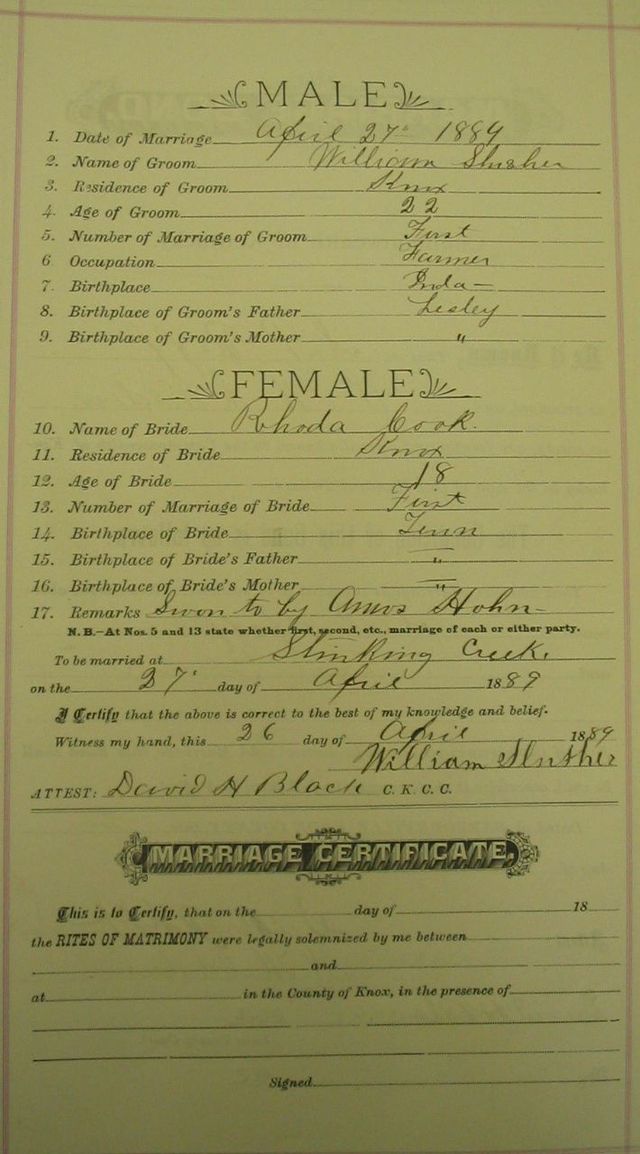 MALE
1. Date of Marriage April 27 1889
2. Name of Groom William Slusher
3. Residence of Groom Knox
4. Age of Groom 22
5. Number of Marriage of Groom First
6 Occupation Farmer
7. Birthplace
8. Birthplace of Groom's Father Lesley
9. Birthplace of Groom's Mother "
FEMALE
10. Name of Bride Rhoda Cook.
11. Residence of Bride Knox
12. Age of Bride 18
13. Number of Marriage of Bride First
14. Birthplace of Bride Tenn
15. Birthplace of Bride's Father "
16. Birthplace of Bride's Mother "
17. Remarks Swon to by Amos Hohn
N. B.—At Nos. 5 and 13 state whether first, second, etc., marriage of each or either party.
To be married at Stinking Creek.
on the 27 day of April 1889
I Certify that the above is correct to the best of my knowledge and belief.
Witness my hand, this 26 day of April 1889
William Slusher
ATTEST: David H Black C. K. C. C.
MARRIAGE CERTIFICATE.
This is to Certify, that on the day of 18
the RITES OF MATRIMONY were legally solemnized by me between
and
at in the County of Knox, in the presence of
Signed